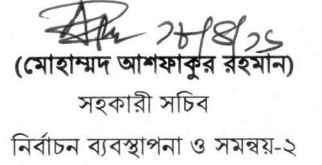 ২৮/৪/২১
(মোহাম্মদ আশফাকুর রহমান)
সহকারী সচিব
নির্বাচন ব্যবস্থাপনা ও সমন্বয়-২